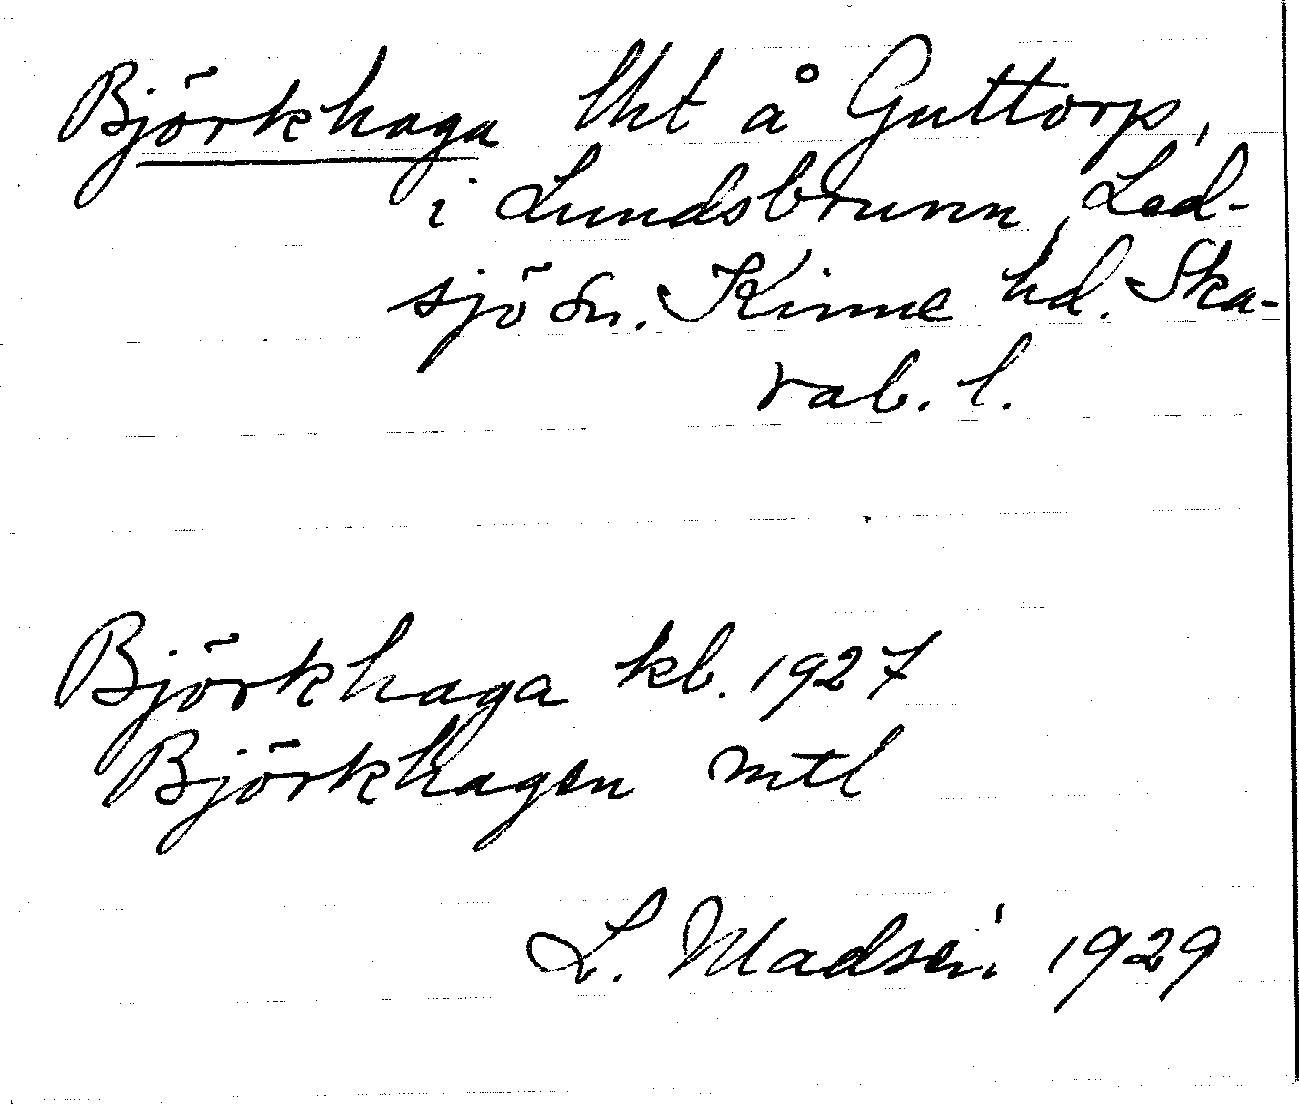 Björkhaga lht å Guttorp,
i Lundsbrunn, Led-
sjö sn. Kinne hd. Ska-
rab. l.
Björkhaga kb. 1927
Björkhagen mtl
L. Madsén 1929